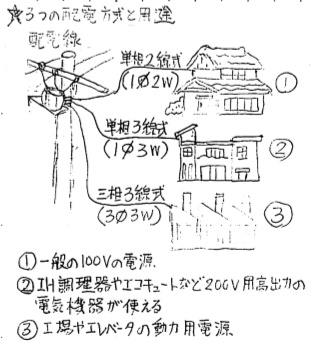 ☆3つの配電方式と用途
配電線
単相2線式
(1Ø2W)
①
単相3線式
(1Ø3W)
②
三相3線式
(3Ø3W)
③
①一般の100Vの電源
②IH調理器やエコキュートなど200V用高出力の
電気機器が使える
③工場やエレベータの動力用電源